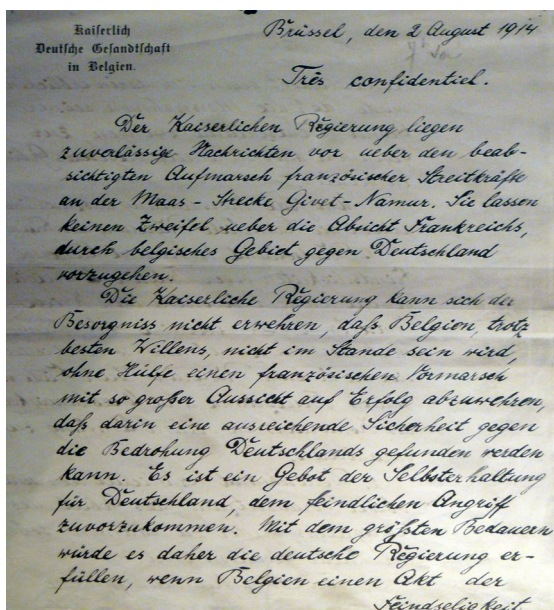 Kaiserlich
Deutsche Gesandtschaft
in Belgien.
Brüssel, den 2 August 1914
Très confidentiel.
Der Kaiserlichen Regierung liegen
zuverlässige Nachrichten vor ueber den beab-
sichtigten Aufmarsch französischer Streitkräfte
an der Maas-Strecke Givet-Namur. Sie lassen
keinen Zweifel ueber die Absicht Frankreichs,
durch belgisches Gebiet gegen Deutschland
vorzugehen.
Die Kaiserliche Regierung kann sich der
Besorgniss nicht erwehren, daß Belgien, trotz
besten Willens, nicht im Stande sein wird,
ohne Hülfe einen französischen Vormarsch
mit so großer Aussicht auf Erfolg abzuwehren,
daß darin eine ausreichende Sicherheit gegen
die Bedrohung Deutschlands gefunden werden
kann. Es ist ein Gebot der Selbsterhaltung
für Deutschland, dem feindlichen Angriff
zuvorzukommen. Mit dem größten Bedauern
würde es daher die deutsche Regierung er-
füllen, wenn Belgien einen Akt der
Feindseligkeit